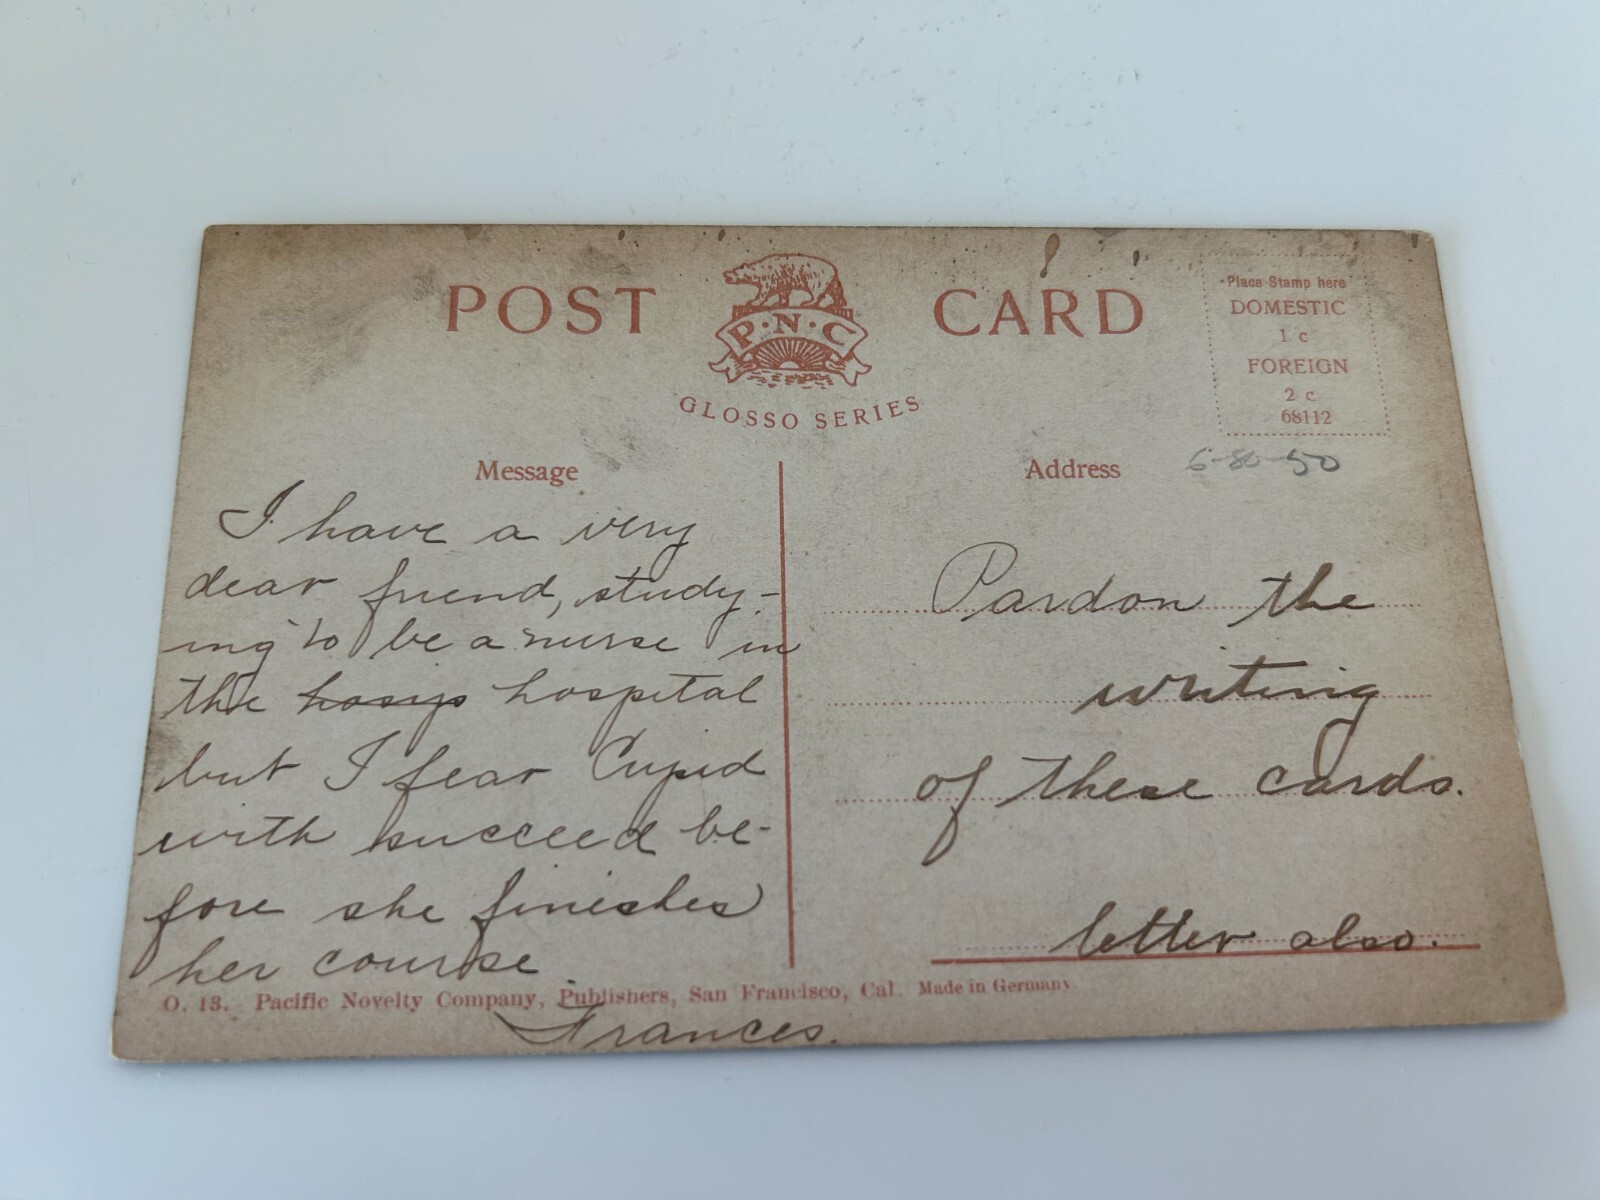 POST CARD
P·N·C
GLOSSO SERIES
Place Stamp here
DOMESTIC
1 c
FOREIGN
2 c
68112
Message
I have a very
dear friend, study-
ing to be a nurse in
the hosptial
but I fear Cupid
with succeed be-
fore she finishes
her course.
Frances.
Address
Pardon the
writing
of these cards.
letter also.
O. 13. Pacific Novelty Company, Publishers, San Francisco, Cal. Made in Germany